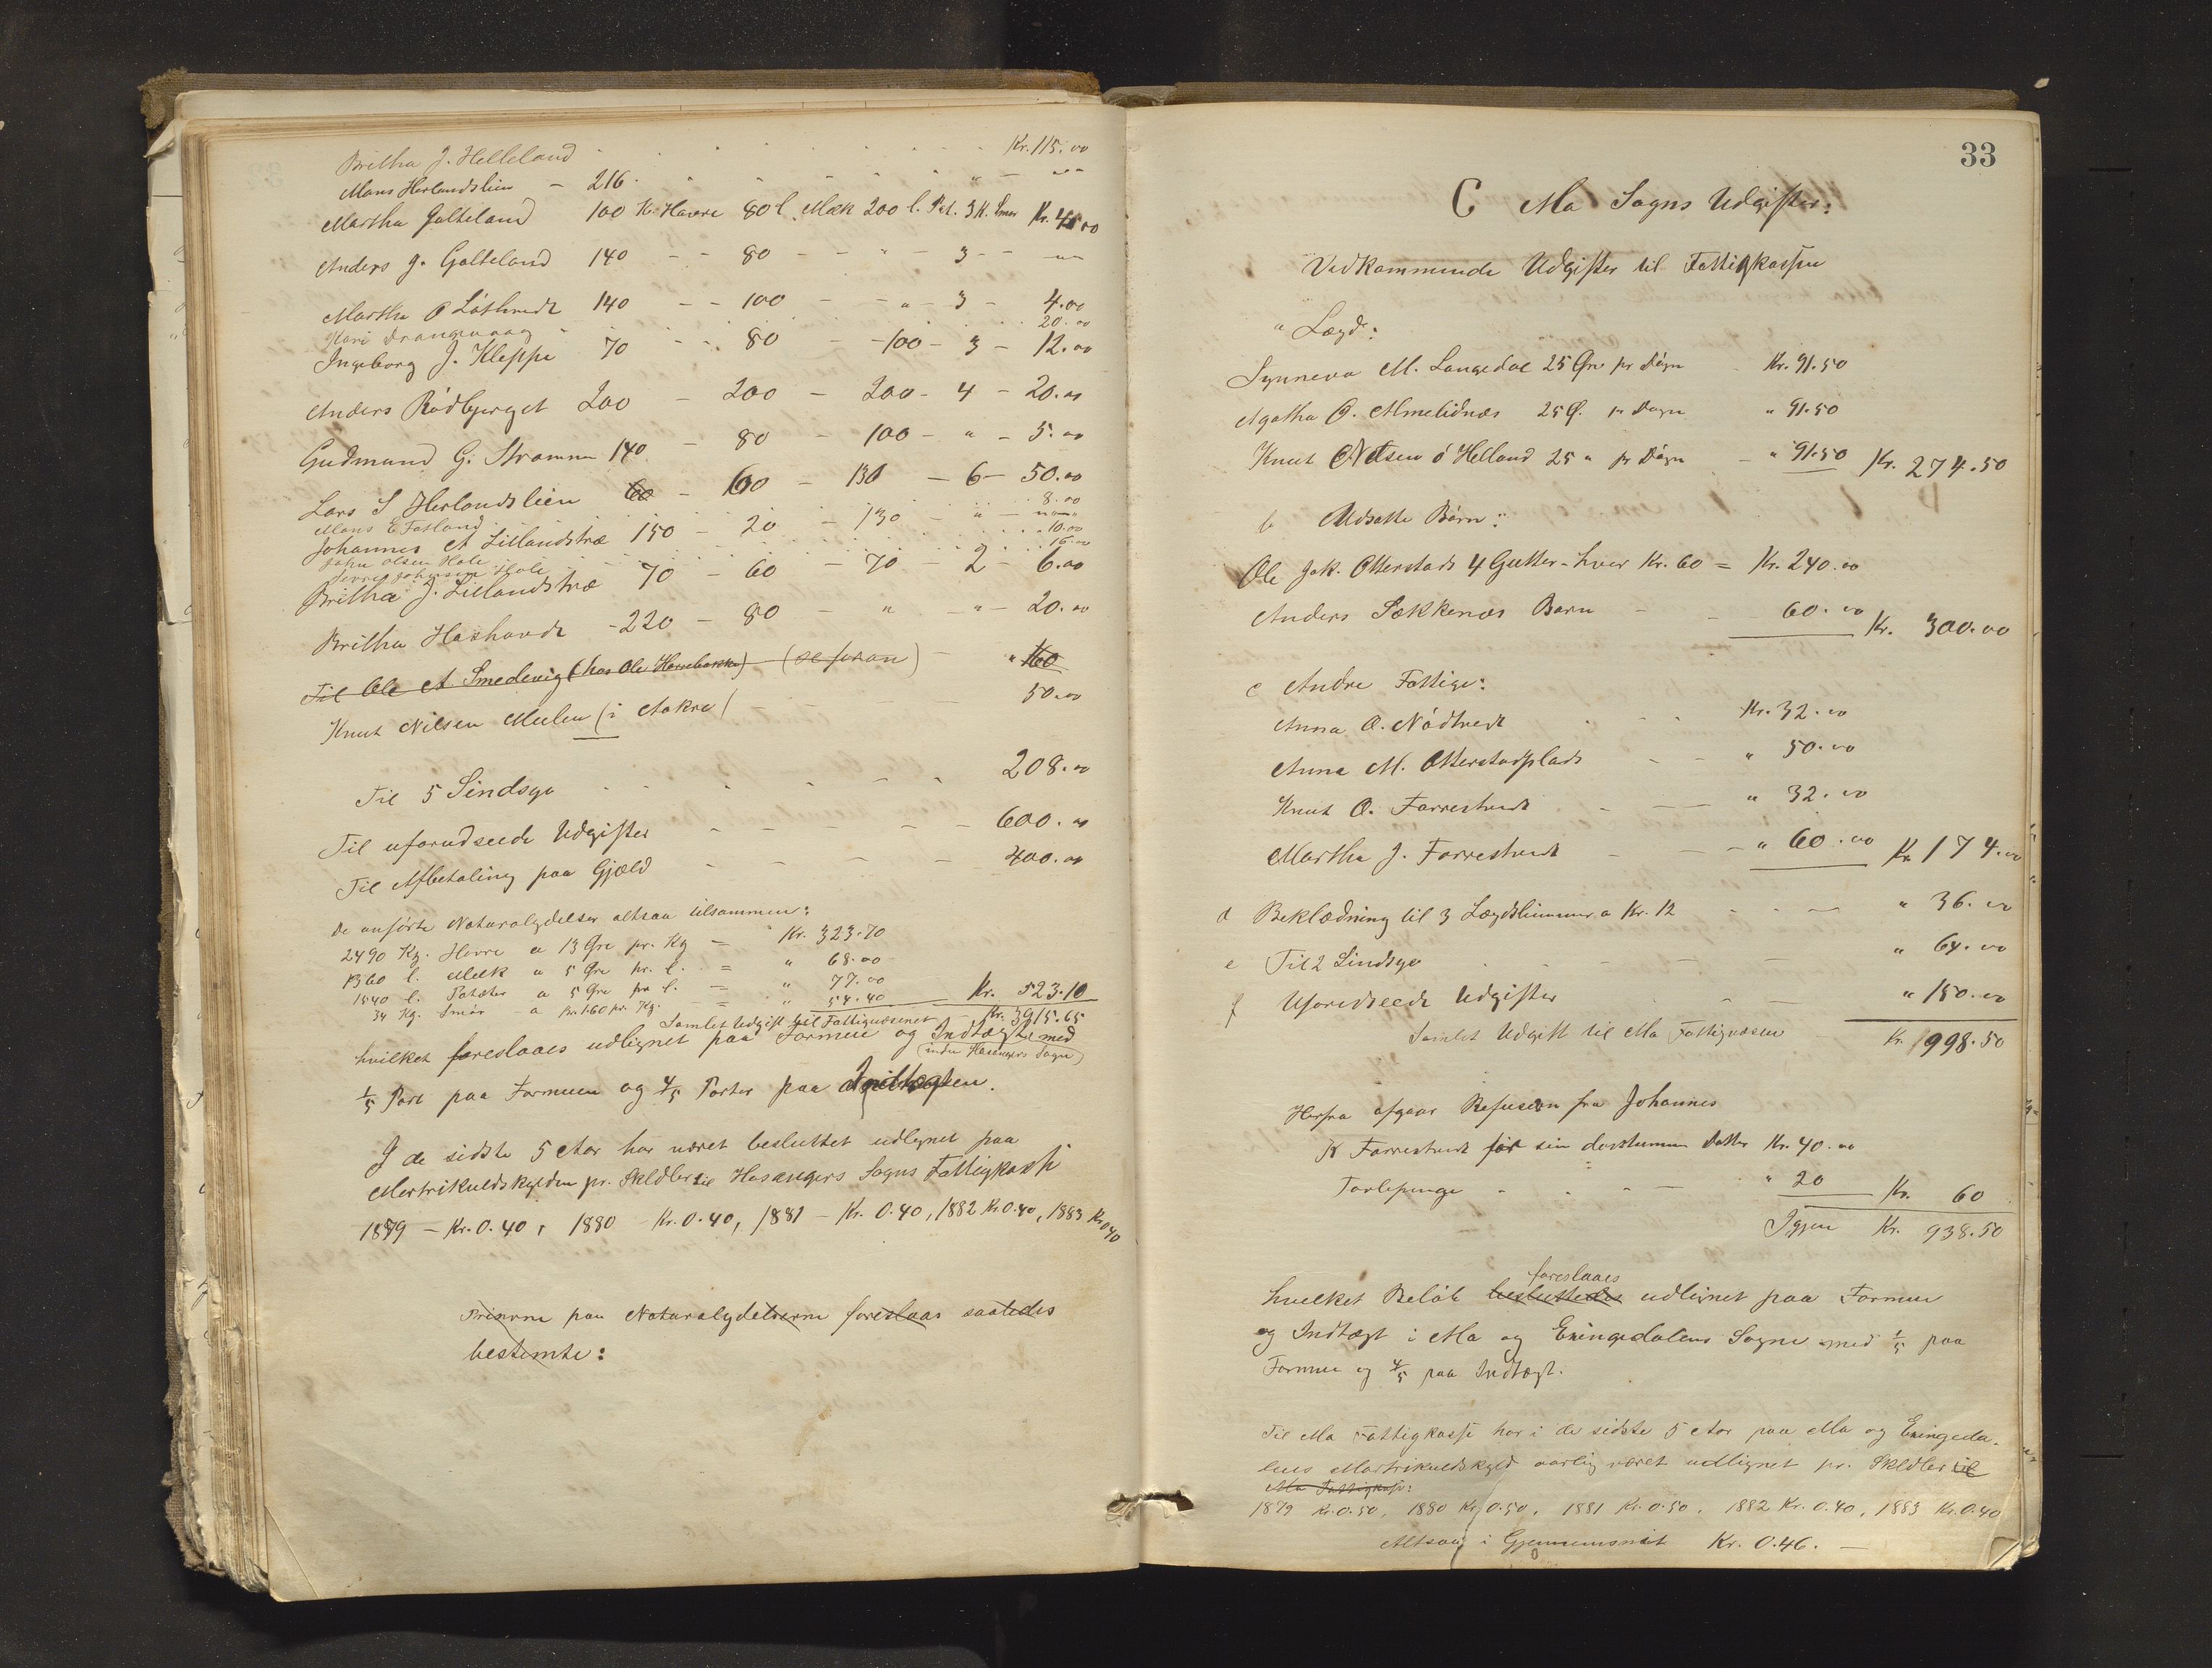 Britha J. Helleland Kr. 115.00
Mons Herlandslien - 216 " - " "
Martha Galteland 100 K. Havre 80 l. Melk 200 l. Pot. 3 K. Smør Kr. 4.00
Anders J. Galteland 140 - - 80 - - " - 3 - - " "
Martha O Låstvedt 140 - - 100 - - " - 3 - 4.00
Kari Drangevaag 20.00
Ingeborg J. Kleppe 70 - - 80 - - 100 - 3 - 12.00
Anders Rødbjerget 200 - 200 - 200 - 4 - 20.00
Gudmund G. Stramme 140 - 80 - 100 - " - 5.00
Lars S Herlandslien 60 - 600 - 130 - 6 - 50.00
Mons E Fatland 8.00
Johannes A Lillandstræ 150 - 20 - 130 - " - " "
John Olsen Hole 10.00
Sjurre Johnsen Hole 16.00
Britha J. Lillandstræ 70 - 60 - 70 - 2 - 6.00
Britha Hashovdt - 220 - 80 - " - " - 20.00
Til Ole A Smedevig (hos Ole ) (se foran) - " 160
Knut Nilsen Mulen (i Aakre) 50.00
Til 5 Sindsyge 208.00
Til uforudseede Udgifter - - - - - 600.00
Til Afbetaling paa Gjæld - - - - 400.00
De anførte Naturalydelser altsaa tilsammen:
2490 Kg. Havre a 13 Øre pr. Kg = Kr. 323.70
1360 l. Melk a 5 Øre pr. l. = " 68.00
1540 l. Poteter a 5 Øre pr l. = " 77.00
34 Kg. Smør - a Kr. 1.60 pr. Kg. = " 54.40 Kr. 523.10
Samlet Udgift til Fattigvæsenet - Kr. 3915.65
hvilket foreslaaes udlignet paa Formue og Indtægt med
(inden Hosangers Sogn)
1/5 Part paa Formuen og 4/5 Parter paa Indtægten.
I de sidste 5 Aar har været besluttet udlignet paa
Martrikuldskylden pr. Skldler til Hosangers Sogns Fattigkasse
1879 - Kr. 0.40, 1880 Kr. 0.40, 1881 - Kr. 0.40, 1882 Kr. 0.40, 1883 Kr 0.40
Priserne paa Naturalydelserne foreslaaes saaledes
bestemte:
33
C Mo Sogns Udgifter:
Vedkommende Udgifter til Fattigkassen
a Lægd:
Synneva M. Langedal 25 Øre pr Døgn Kr. 91.50
Agatha O. Almelidnæs 25 Ø. pr Døgn " 91.50
Knut Nilsen ó Helland 25 " pr Døgn - " 91.50 Kr. 274.50
b Udsatte Børn:
Ole Jak. Otterstads 4 Gutter - hver Kr. 60 = Kr. 240.00
Anders Sækkenæs Barn - - 60.00 Kr. 300.00
c Andre Fattige:
Anna O. Nådtvedt Kr. 32.00
Anna M. Otterstadplads - - " 50.00
Knut O. Farrestvedt - - - " 32.00
Martha J. Farrestvedt - - - " 60.00 Kr 174.00
d Beklædning til 3 Lægdslimmer a Kr. 12 - - - " 36.00
e Til 2 Sindsyge - - - - " 64.00
f Uforudseede Udgifter - - " 150.00
Samlet Udgift til Mo Fattigvæsen - Kr. 998.50
Herfra afgaar Refusion fra Johannes
K Farrestvedt for sin døvstumme Datter Kr. 40.00
Torlepenge - - - " 20 Kr. 60
Igjen Kr. 938.50
foreslaaes
hvilket Beløb besluttedes udlignet paa Formue
og Indtægt i Mo og Exingedalens Sogne med 1/5 paa
Formue og 4/5 paa Indtægt.
Til Mo Fattigkasse har i de sidste 5 Aar paa Mo og Exingeda-
lens Martrikuldskyld aarlig været udlignet pr. Skldler til
Mo Fattigkasse:
1879 Kr. 0.50, 1880 Kr 0.50, 1881 Kr. 0.50, 1882 Kr. 0.40, 1883 Kr. 0.40
Altsaa i Gjennemsnit Kr. 0.46. -